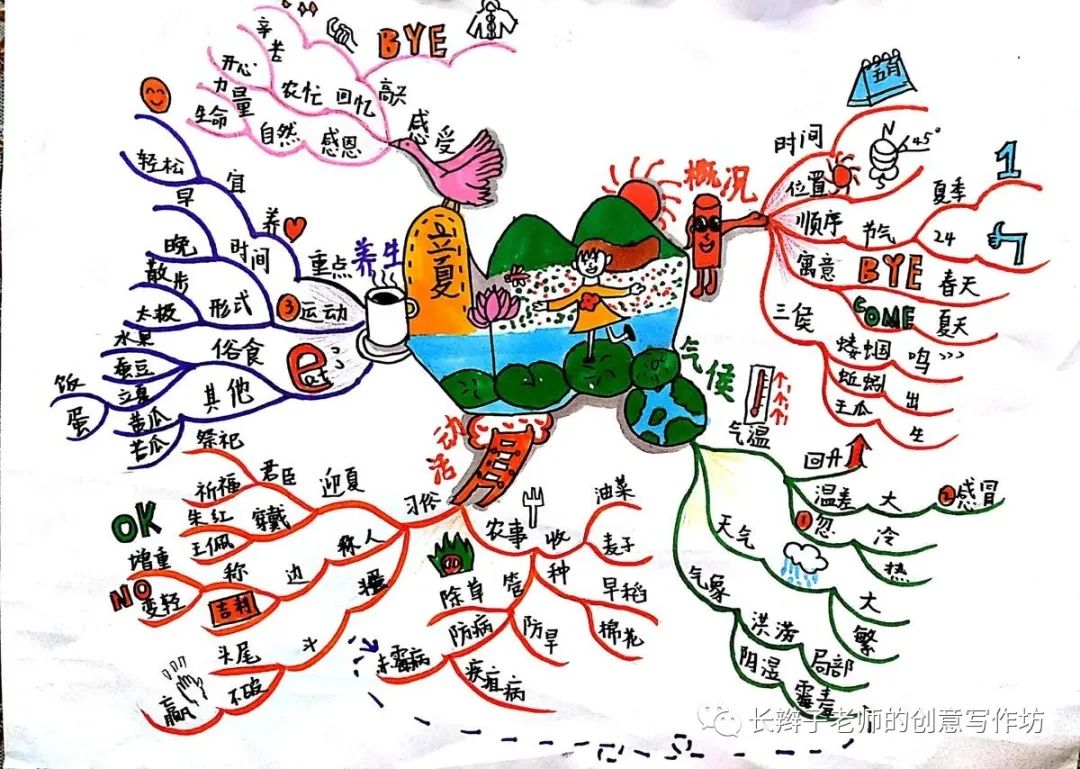 立夏
概况
时间
五月
位置
N
45°
S
顺序
节气
夏季
1
24
寓意
BYE
春天
COME
夏天
三侯
蝼蝈
鸣
蚯蚓
出
王瓜
生
气候
气温
回升
温差
大
②感冒
①忽
冷
热
天气
大
繁
气象
洪涝
局部
阴湿
霉
活动
农事
收
油菜
麦子
种
早稻
棉花
管
除草
防病
防旱
赤霉病
疾疽病
习俗
迎夏
君臣
祭祀
祈福
穿戴
朱红
玉佩
称人
称
OK
增重
NO
变轻
边
吉利
蛋
斗
头尾
不破
赢
养生
重点
养
宜
轻松
时间
早
晚
③运动
形式
散步
太极
eat
俗食
水果
蚕豆
立夏
饭
蛋
其他
黄瓜
苦瓜
感受
高兴
BYE
回忆
农忙
辛苦
开心
感恩
自然
力量
生命
长辫子老师的创意写作坊